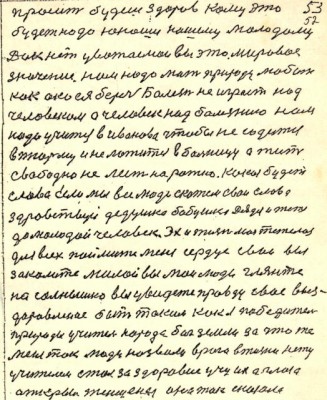 просит будем здоров кому это 53
будет надо юноши нашему молодому 52
Вот нет уважаемой вы это мировое
значение нам надо мать природу любить
как око себя беречь Болезнь не играет над
человеком а человек над болезнию нам
надо учится в Иванова чтобы не садится
в тюрму и не ложится в больницу а жить
свободно не лезть на рожно. Какая будет
слава если мы выйдя скажем свои слова
здравствуй дедушка бабушка дядя и тетя
да молодой человек. Эх и жизнь моя
для всех поймите меня сердце свое вы
закалите милой вы мои люди гляньте
на солнышко вы увидете правду свое выз-
даравление быть таким как я победитель
природы учитель народа бог земли за это же
меня так люди назвали врага в жизни нету
учителя стал за здоровие
женщины она так сказала